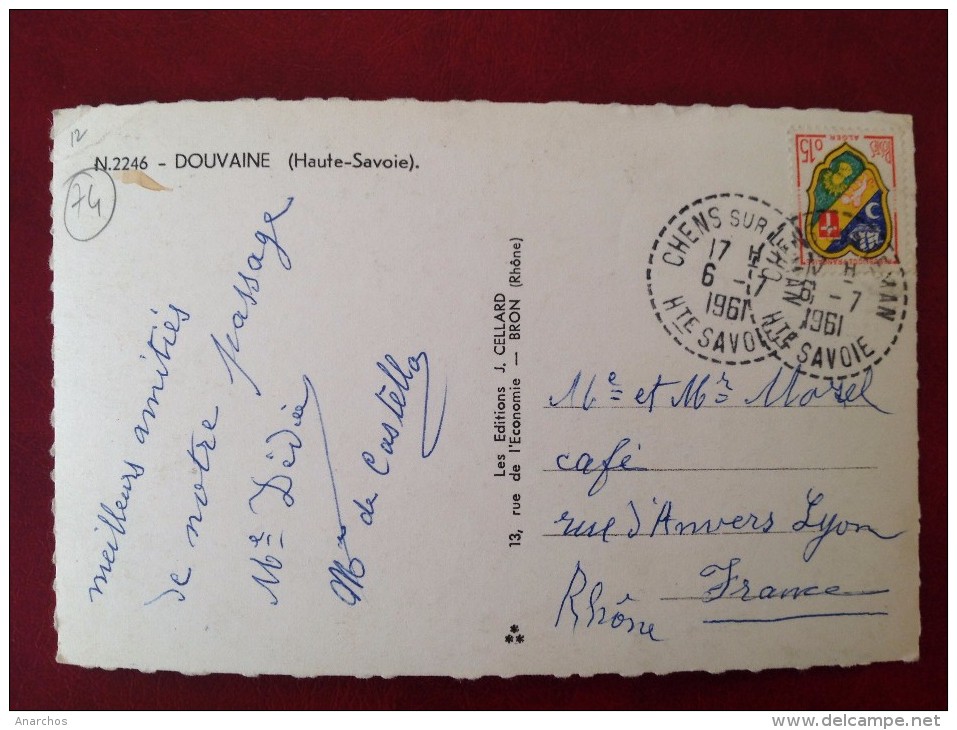 12
N.2246 - DOUVAINE (Haute-Savoie).
74
meilleurs amitiés
de notre passage
Me Dédée
Mme de Castella
Les Editions J. CELLARD
13, rue de l'Economie — BRON (Rhône)
0,15
ALGER
CHENS SUR LEMAN
17 H
6 - 7
1961
HTE SAVOIE
H
- 7
1961
HTE SAVOIE
Me et Mr Morel
café
rue d'Anvers Lyon
Rhône France
Anarchos
delcampe.net